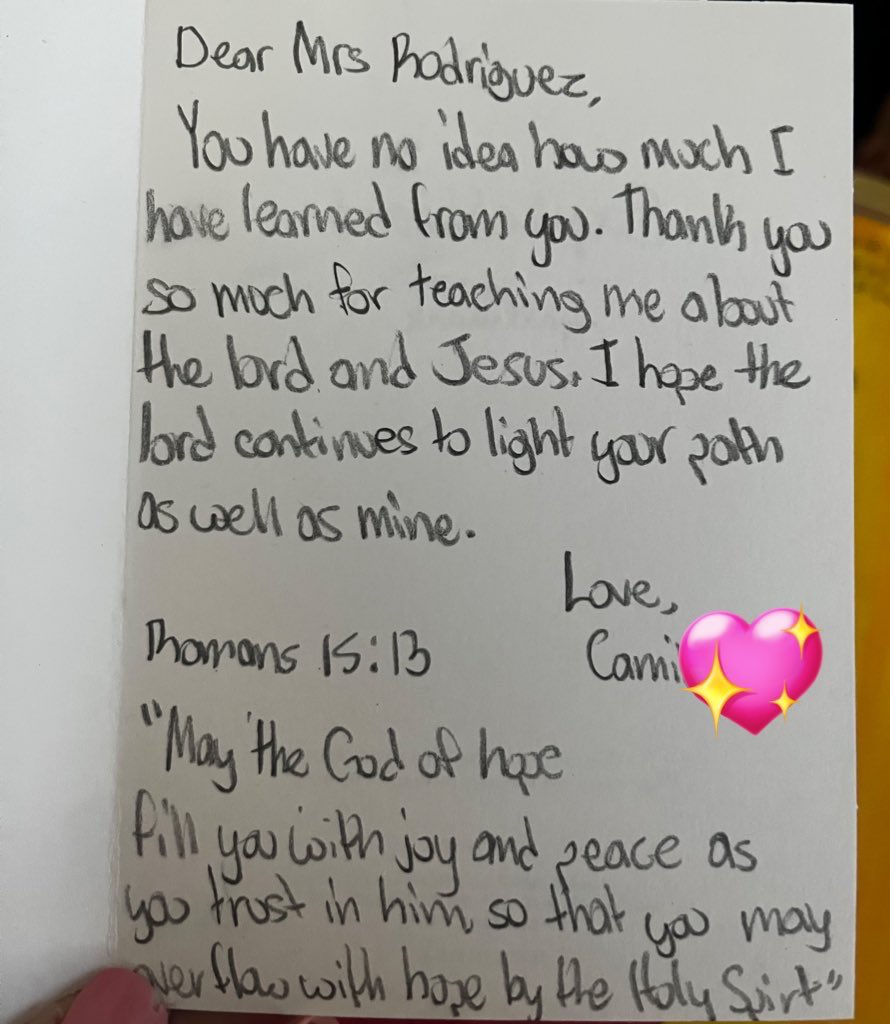 Dear Mrs Rodriguez,
You have no idea how much I
have learned from you. Thank you
so much for teaching me about
the lord and Jesus. I hope the
lord continues to light your path
as well as mine.
Love,
Cami
Romans 15:13
"May the God of hope
fill you with joy and peace as
you trust in him so that you may
overflow with hope by the Holy Spirt"